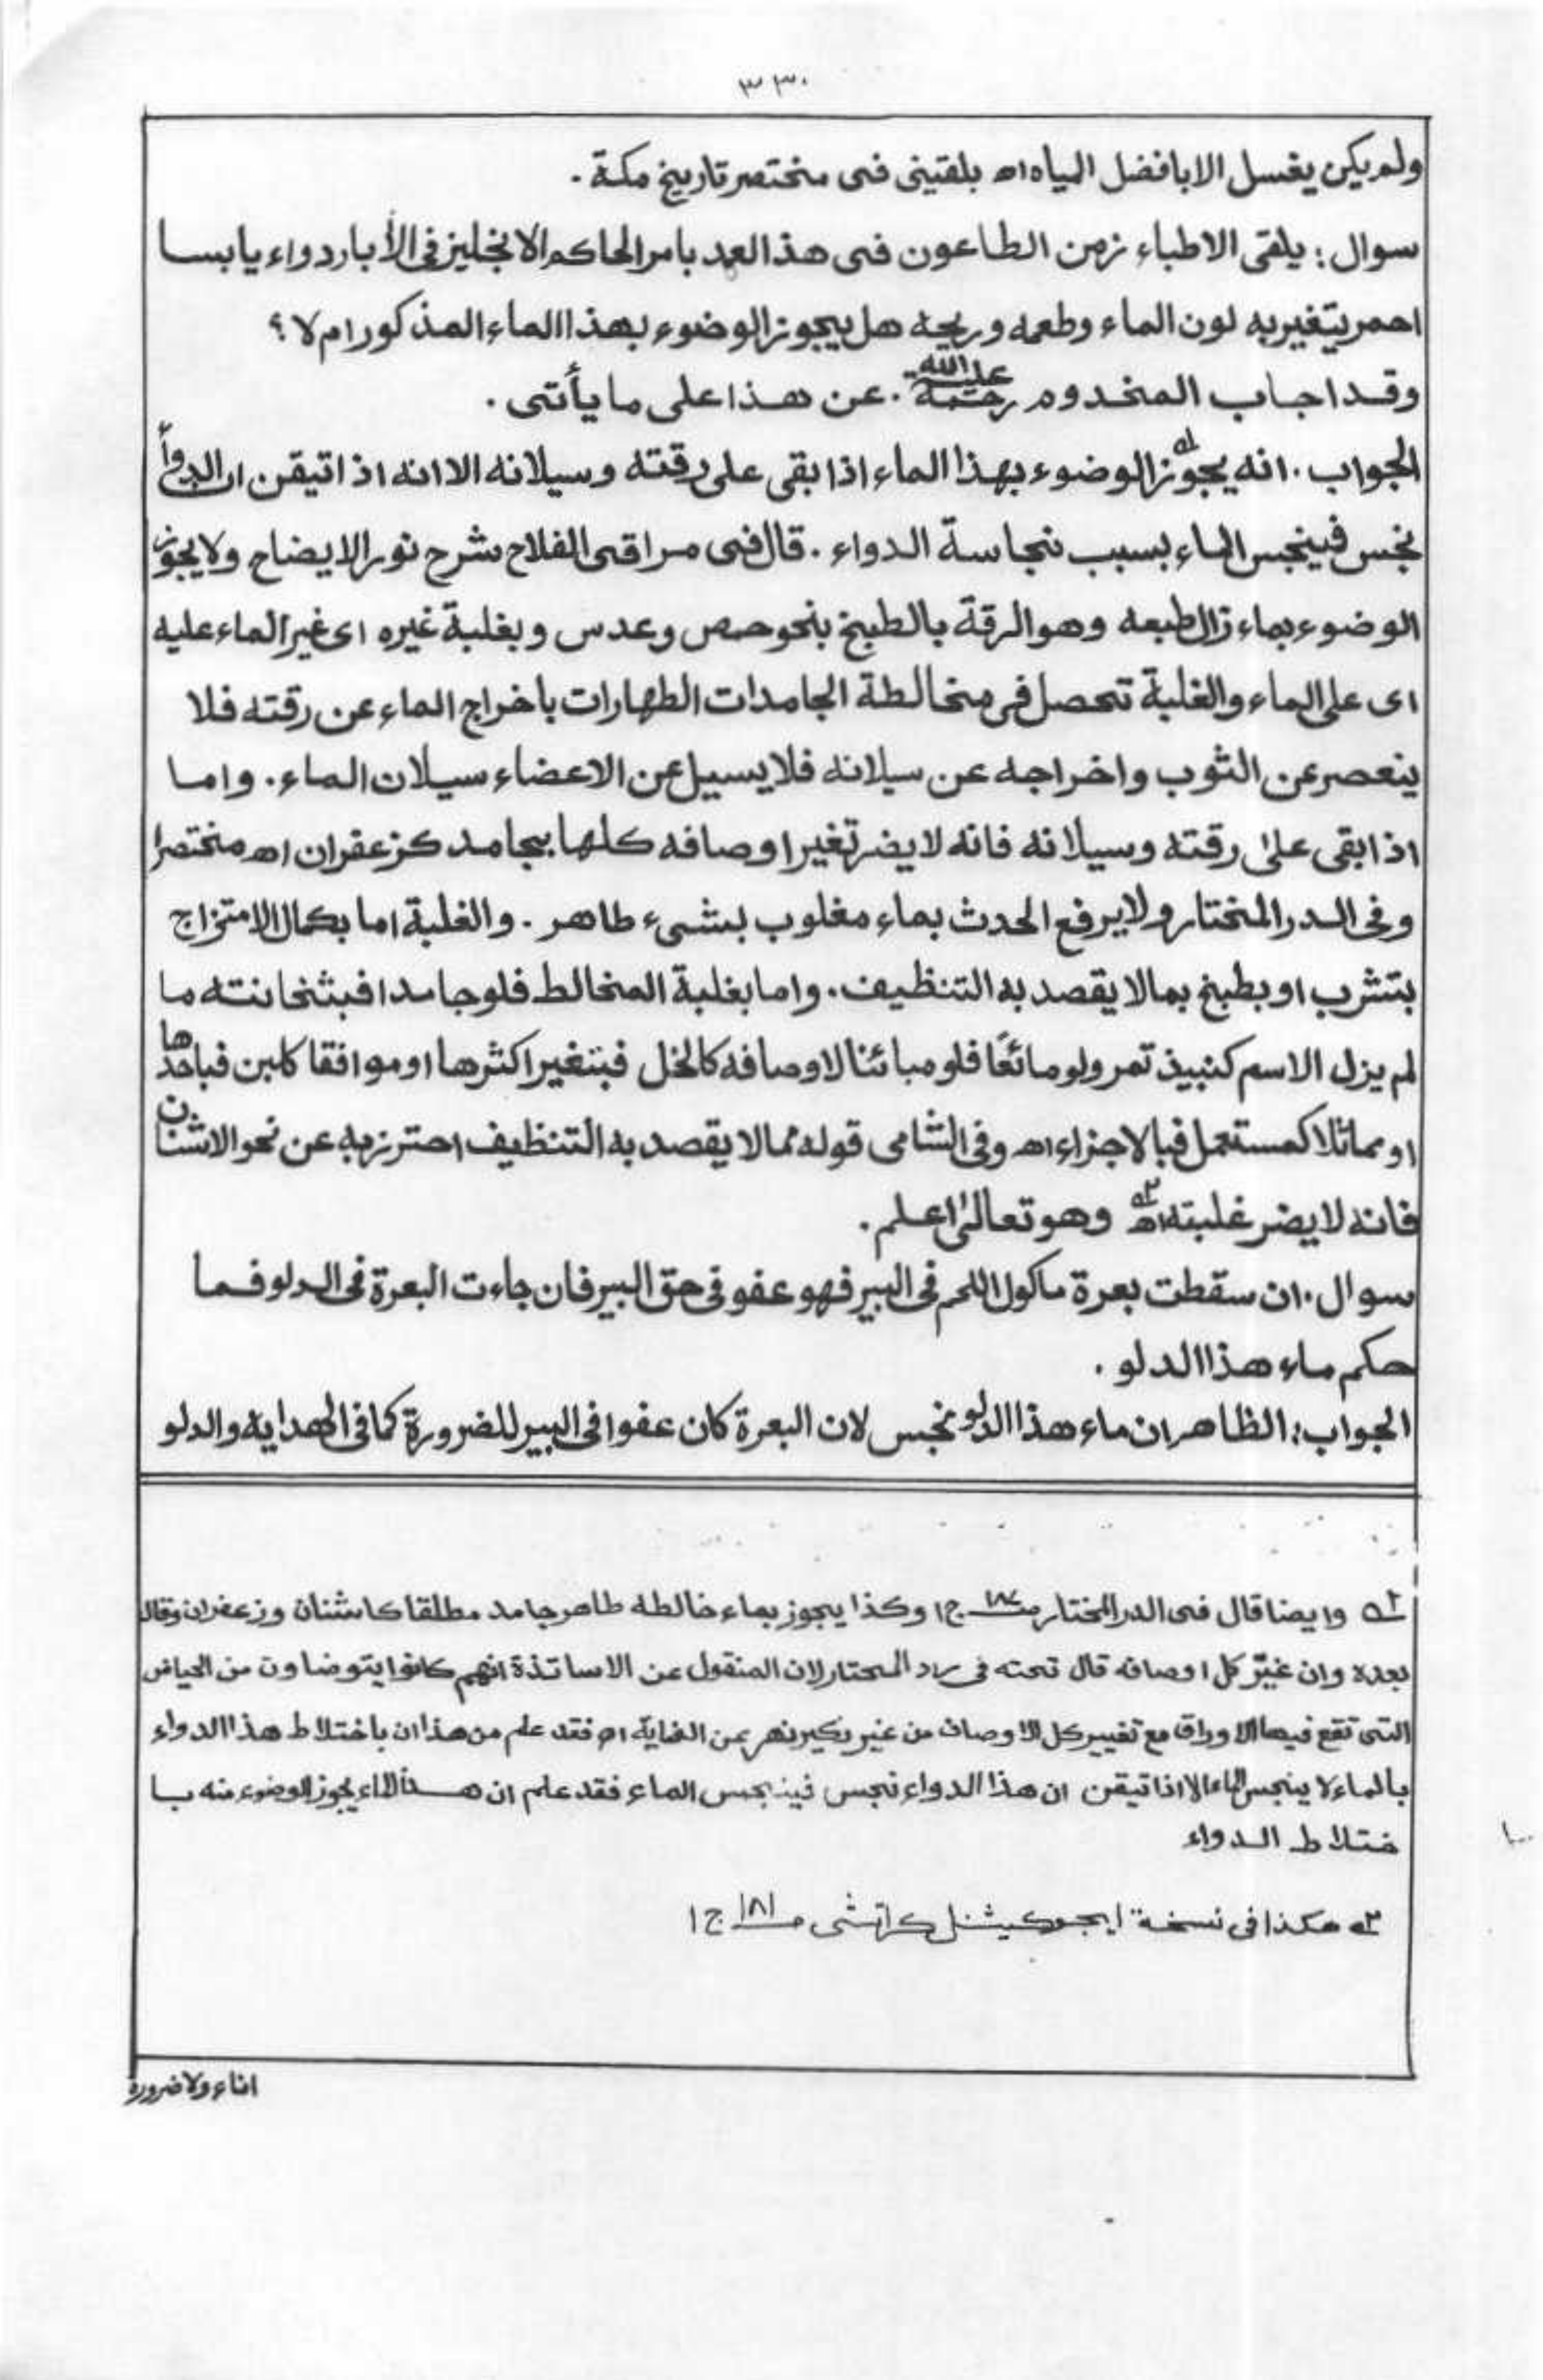 ٣٣٠
ولم يكن يغسل الا بافضل المياه اھ بلقينى فى مختصر تاريخ مكة .
سوال : يلقى الاطباء زمن الطاعون فى هذ العهد بامر الحاكم الانجليز فى الأبار دواء يابسا
احمر يتغير به لون الماء وطعمه وريحه هل يجوز الوضوء بهذا الماء المذكور ام لا ؟
وقد اجاب المخدوم رحمة الله عليه . عن هذا على ما يأتى .
الجواب . انه يجوز له الوضوء بهذا الماء اذا بقى على رقته وسيلانه الا انه اذا تيقن ان الدواء
نجس فينجس الماء بسبب نجاسة الدواء . قال فى مراقى الفلاح شرح نور الايضاح ولا يجوز
الوضوء بماء زال طبعه وهو الرقة بالطبخ بنحو حمص وعدس وبغلبة غيره اى غير الماء عليه
اى على الماء والغلبة تحصل فى مخالطة الجامدات الطهارات باخراج الماء عن رقته فلا
ينعصر عن الثوب واخراجه عن سيلانه فلا يسيل عن الاعضاء سيلان الماء . واما
اذا بقى على رقته وسيلانه فانه لا يضر تغير اوصافه كلها بجامد كزعفران اھ مختصرا
وفى الدر المختار ولا يرفع الحدث بماء مغلوب بشىء طاهر . والغلبة اما بكمال الامتزاج
بتشرب او بطبخ بما لا يقصد به التنظيف . واما بغلبة المخالط فلو جامدا فبثخانته ما
لم يزل الاسم كنبيذ تمر ولو مائعًا فلو مبائنا لاوصافه كالخل فبتغير اكثرها او موافقا كلبن فباحدها
او مماثلا كمستعمل فبالاجزاء اھ وفى الشامى قوله مما لا يقصد به التنظيف احترز به عن نحو الاشنان
فانه لا يضر غلبته اھ ٢ه وهو تعالىٰ اعلم .
سوال . ان سقطت بعرة ماكول اللحم فى البير فهو عفو فى حق البير فان جاءت البعرة فى الدلو فما
حكم ماء هذا الدلو .
الجواب : الظاهر ان ماء هذا الدلو نجس لان البعرة كان عفوا فى البير للضرورة كما فى الهداية والدلو
١ه وايضا قال فى الدر المختار ص١٨٤ ج١ وكذا يجوز بماء خالطه طاهر جامد مطلقا كاشنان وزعفران وقال
بعده وان غيّر كل اوصافه قال تحته فى رد المحتار لان المنقول عن الاساتذة انهم كانوا يتوضاون من الحياض
التى تقع فيها الاوراق مع تغيير كل الاوصاف من غير نكير نهر عن النهاية اھ فقد علم من هذا ان باختلاط هذا الدواء
بالماء لا ينجس الماء الا اذا تيقن ان هذا الدواء نجس فينجس الماء فقد علم ان هذا الماء يجوز الوضوء منه با
ختلاط الدواء
٢ه هكذا فى نسخة ايجوكيشنل كراتشى ص١٨١ ج١
اناء ولا ضرورة